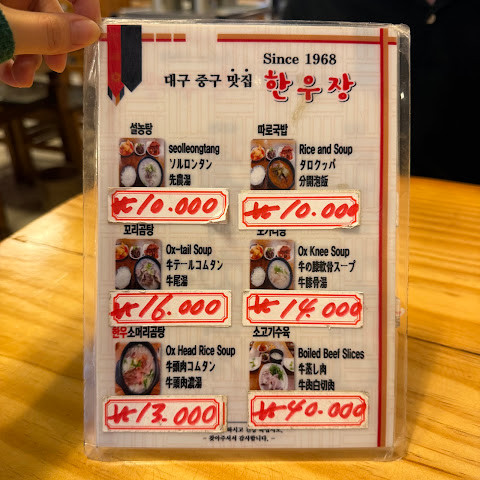 Since 1968
대구 중구 맛집 한우장
설농탕
seolleongtang
ソルロンタン
先農湯
₩10.000
따로국밥
Rice and Soup
タロクッパ
分開泡飯
₩10.000
꼬리곰탕
Ox-tail Soup
牛テールコムタン
牛尾湯
₩16.000
도가니탕
Ox Knee Soup
牛の膝軟骨スープ
牛膝骨湯
₩14.000
한우소머리곰탕
Ox Head Rice Soup
牛頭肉コムタン
牛頭肉濃湯
₩13.000
소고기수육
Boiled Beef Slices
牛蒸し肉
牛肉白切肉
₩40.000
- 찾아주셔서 감사합니다. -